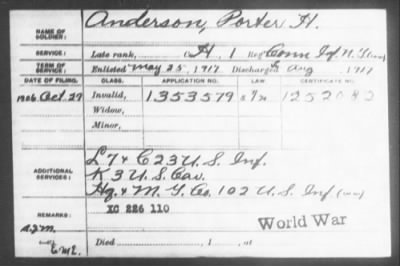 Anderson, Porter H.
NAME OF SOLDIER:
SERVICE: Late rank, Co. H, 1 Reg't Conn Inf. N.G.
TERM OF SERVICE: Enlisted May 25, 1917 Discharged Aug 1917
DATE OF FILING. CLASS. APPLICATION NO. CERTIFICATE NO.
1926 Oct. 29 Invalid, 1353579 1252082
Widow,
Minor,
ADDITIONAL SERVICES: L 7 & C 23 U.S. Inf.
K 3 U.S. Cav.
Hq. & M. G. Co. 102 U.S. Inf
REMARKS: XC 226 110
World War
Died , 1 , at